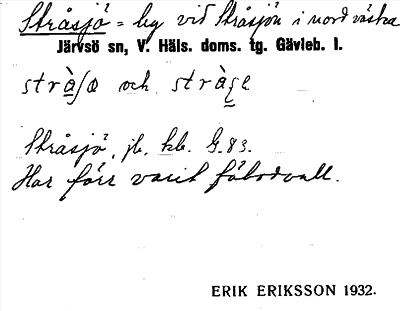 Stråsjö = by vid Stråsjön i nordvästra
Järvsö sn, V. Häls. doms. tg. Gävleb. l.
och
Stråsjö, jb. kb. G. 83.
Har förr varit fäbodvall.
ERIK ERIKSSON 1932.